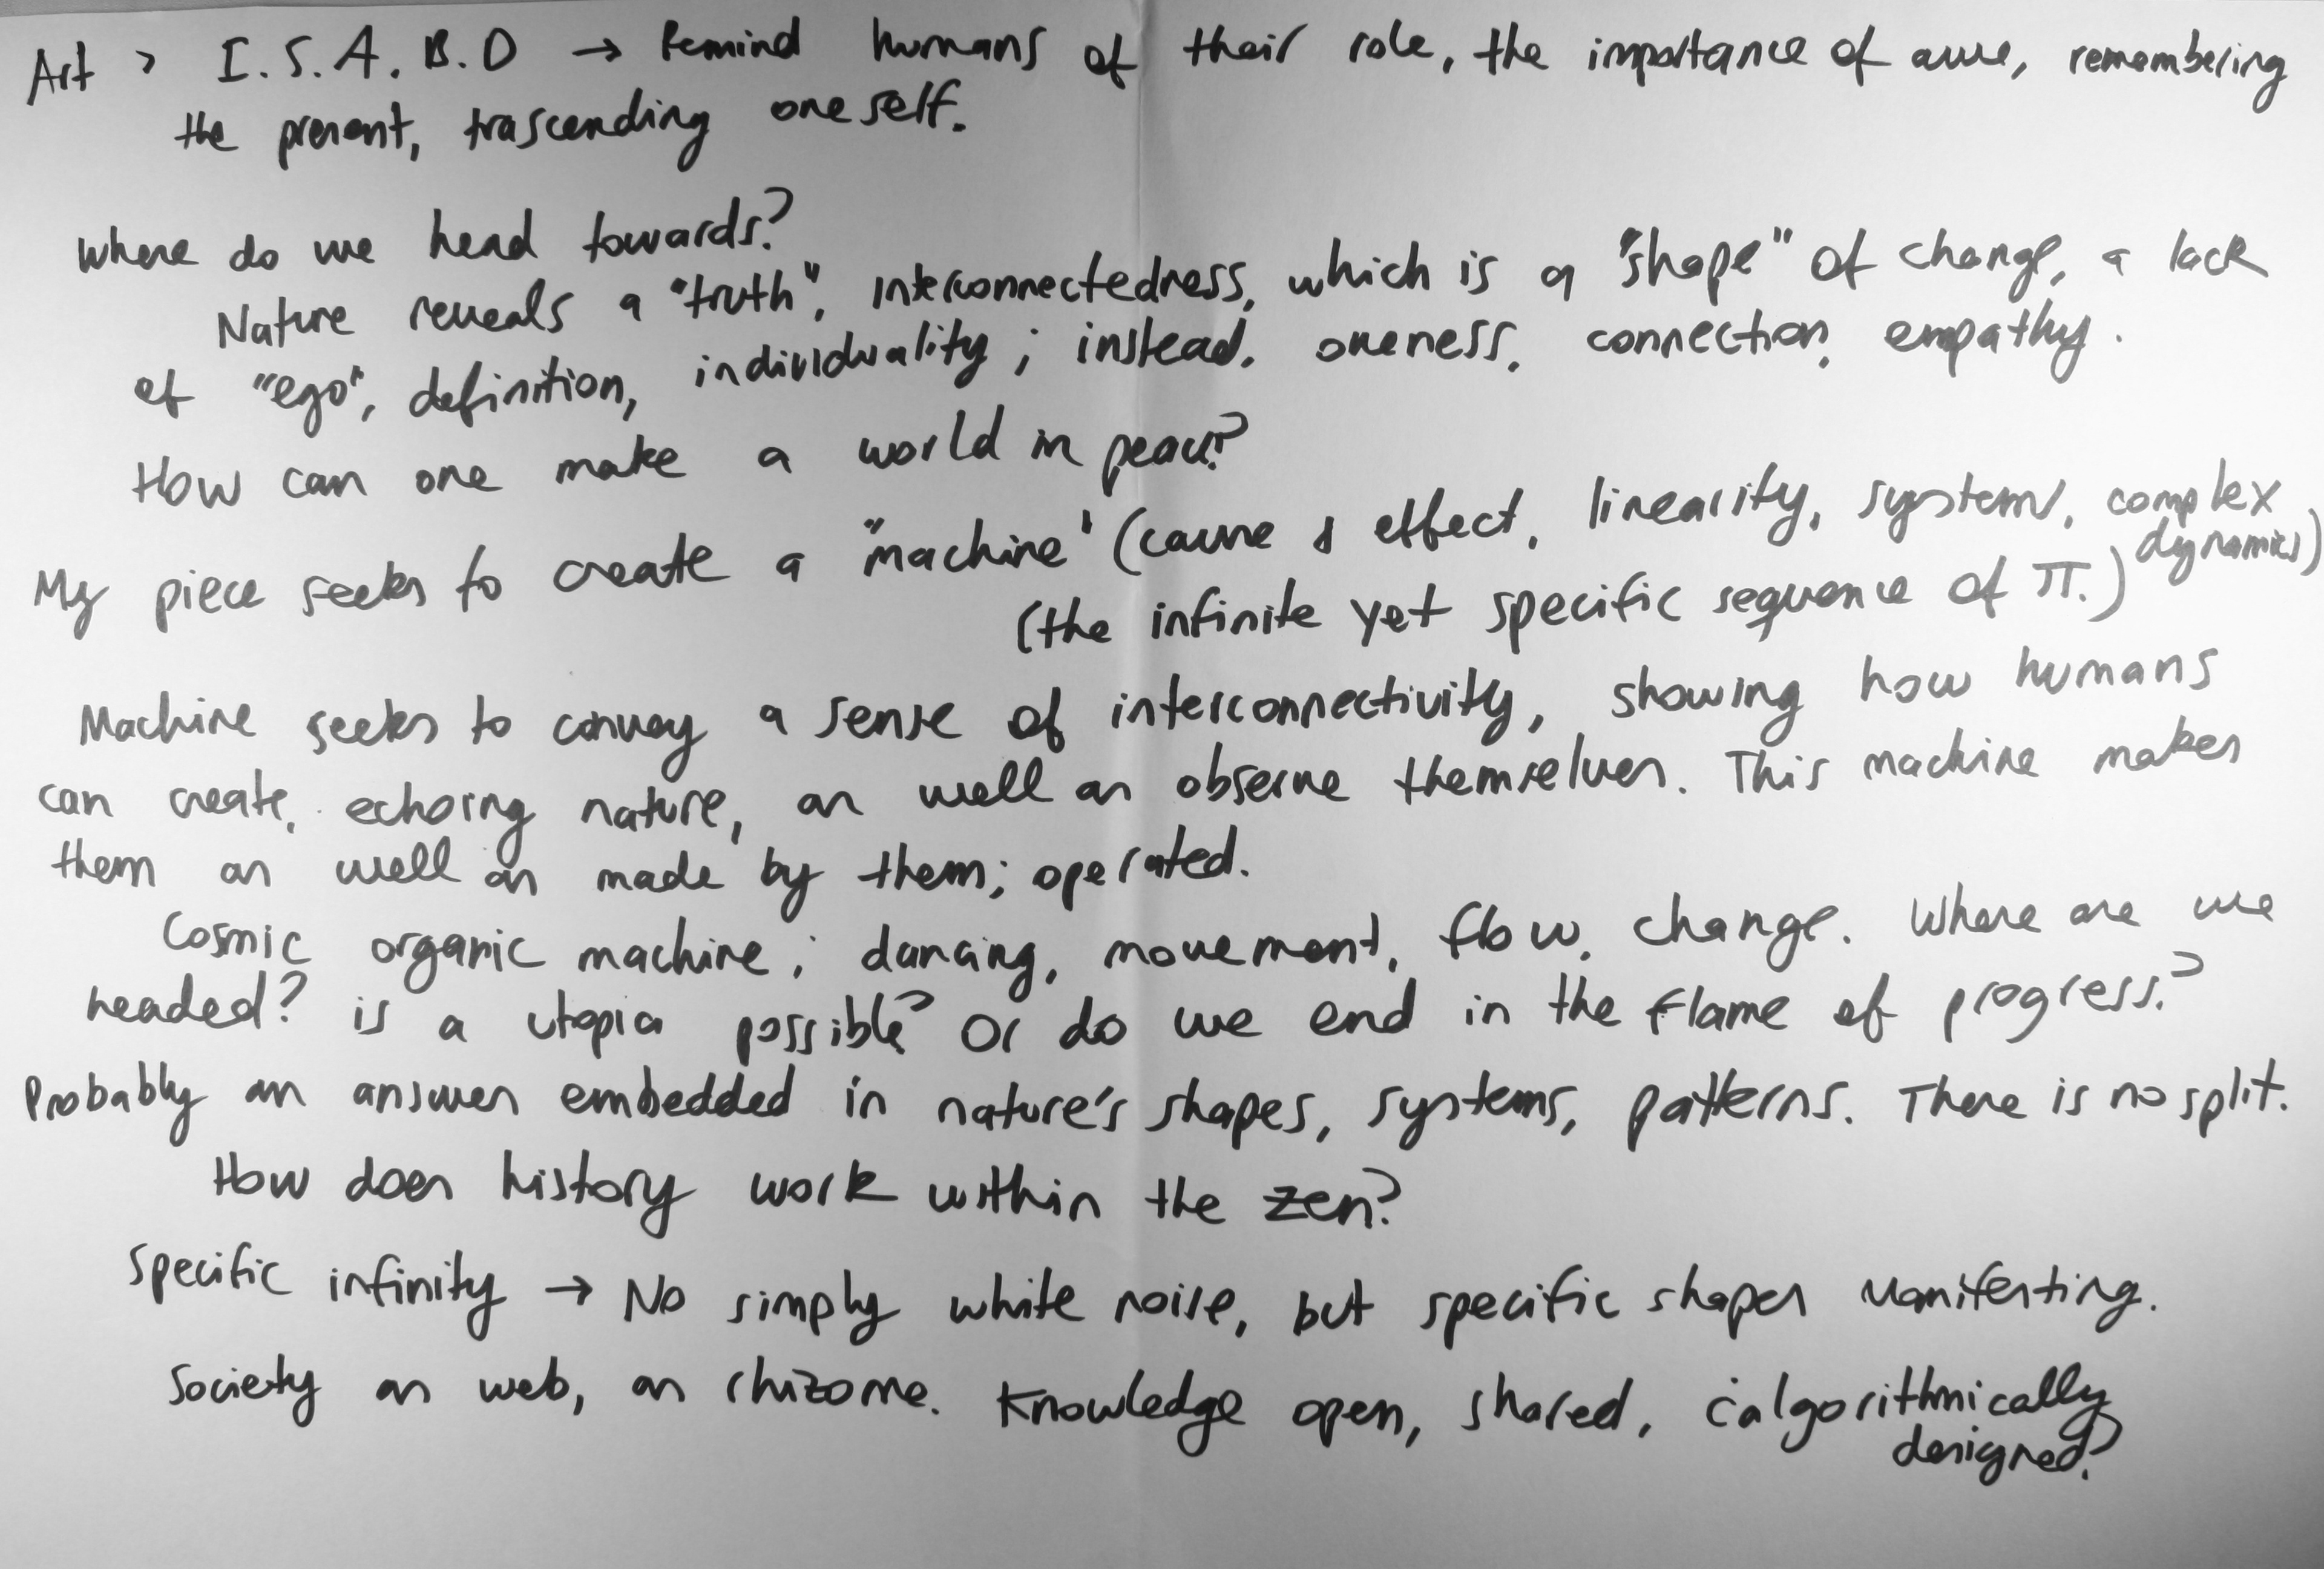 Art > I.S.A.B.D → Remind humans of their role, the importance of awe, remembering
the present, trascending oneself.
Where do we head towards?
Nature reveals a "truth", interconnectedness, which is a "shape" of change, a lack
of "ego", definition, individuality; instead, oneness, connection, empathy.
How can one make a world in peace?
My piece seeks to create a "machine" (cause & effect, linearity, systems, complex
dynamics)
(the infinite yet specific sequence of π.)
Machine seeks to convey a sense of interconnectivity, showing how humans
can create, echoing nature, as well as observe themselves. This machine makes
them as well as made by them; operated.
Cosmic organic machine; dancing, movement, flow, change. Where are we
headed? is a utopia possible? Or do we end in the flame of progress?
Probably an answer embedded in nature's shapes, systems, patterns. There is no split.
How does history work within the zen?
Specific infinity → No simply white noise, but specific shapes manifesting.
Society as web, as rhizome. Knowledge open, shared, ¿algorithmically
designed?